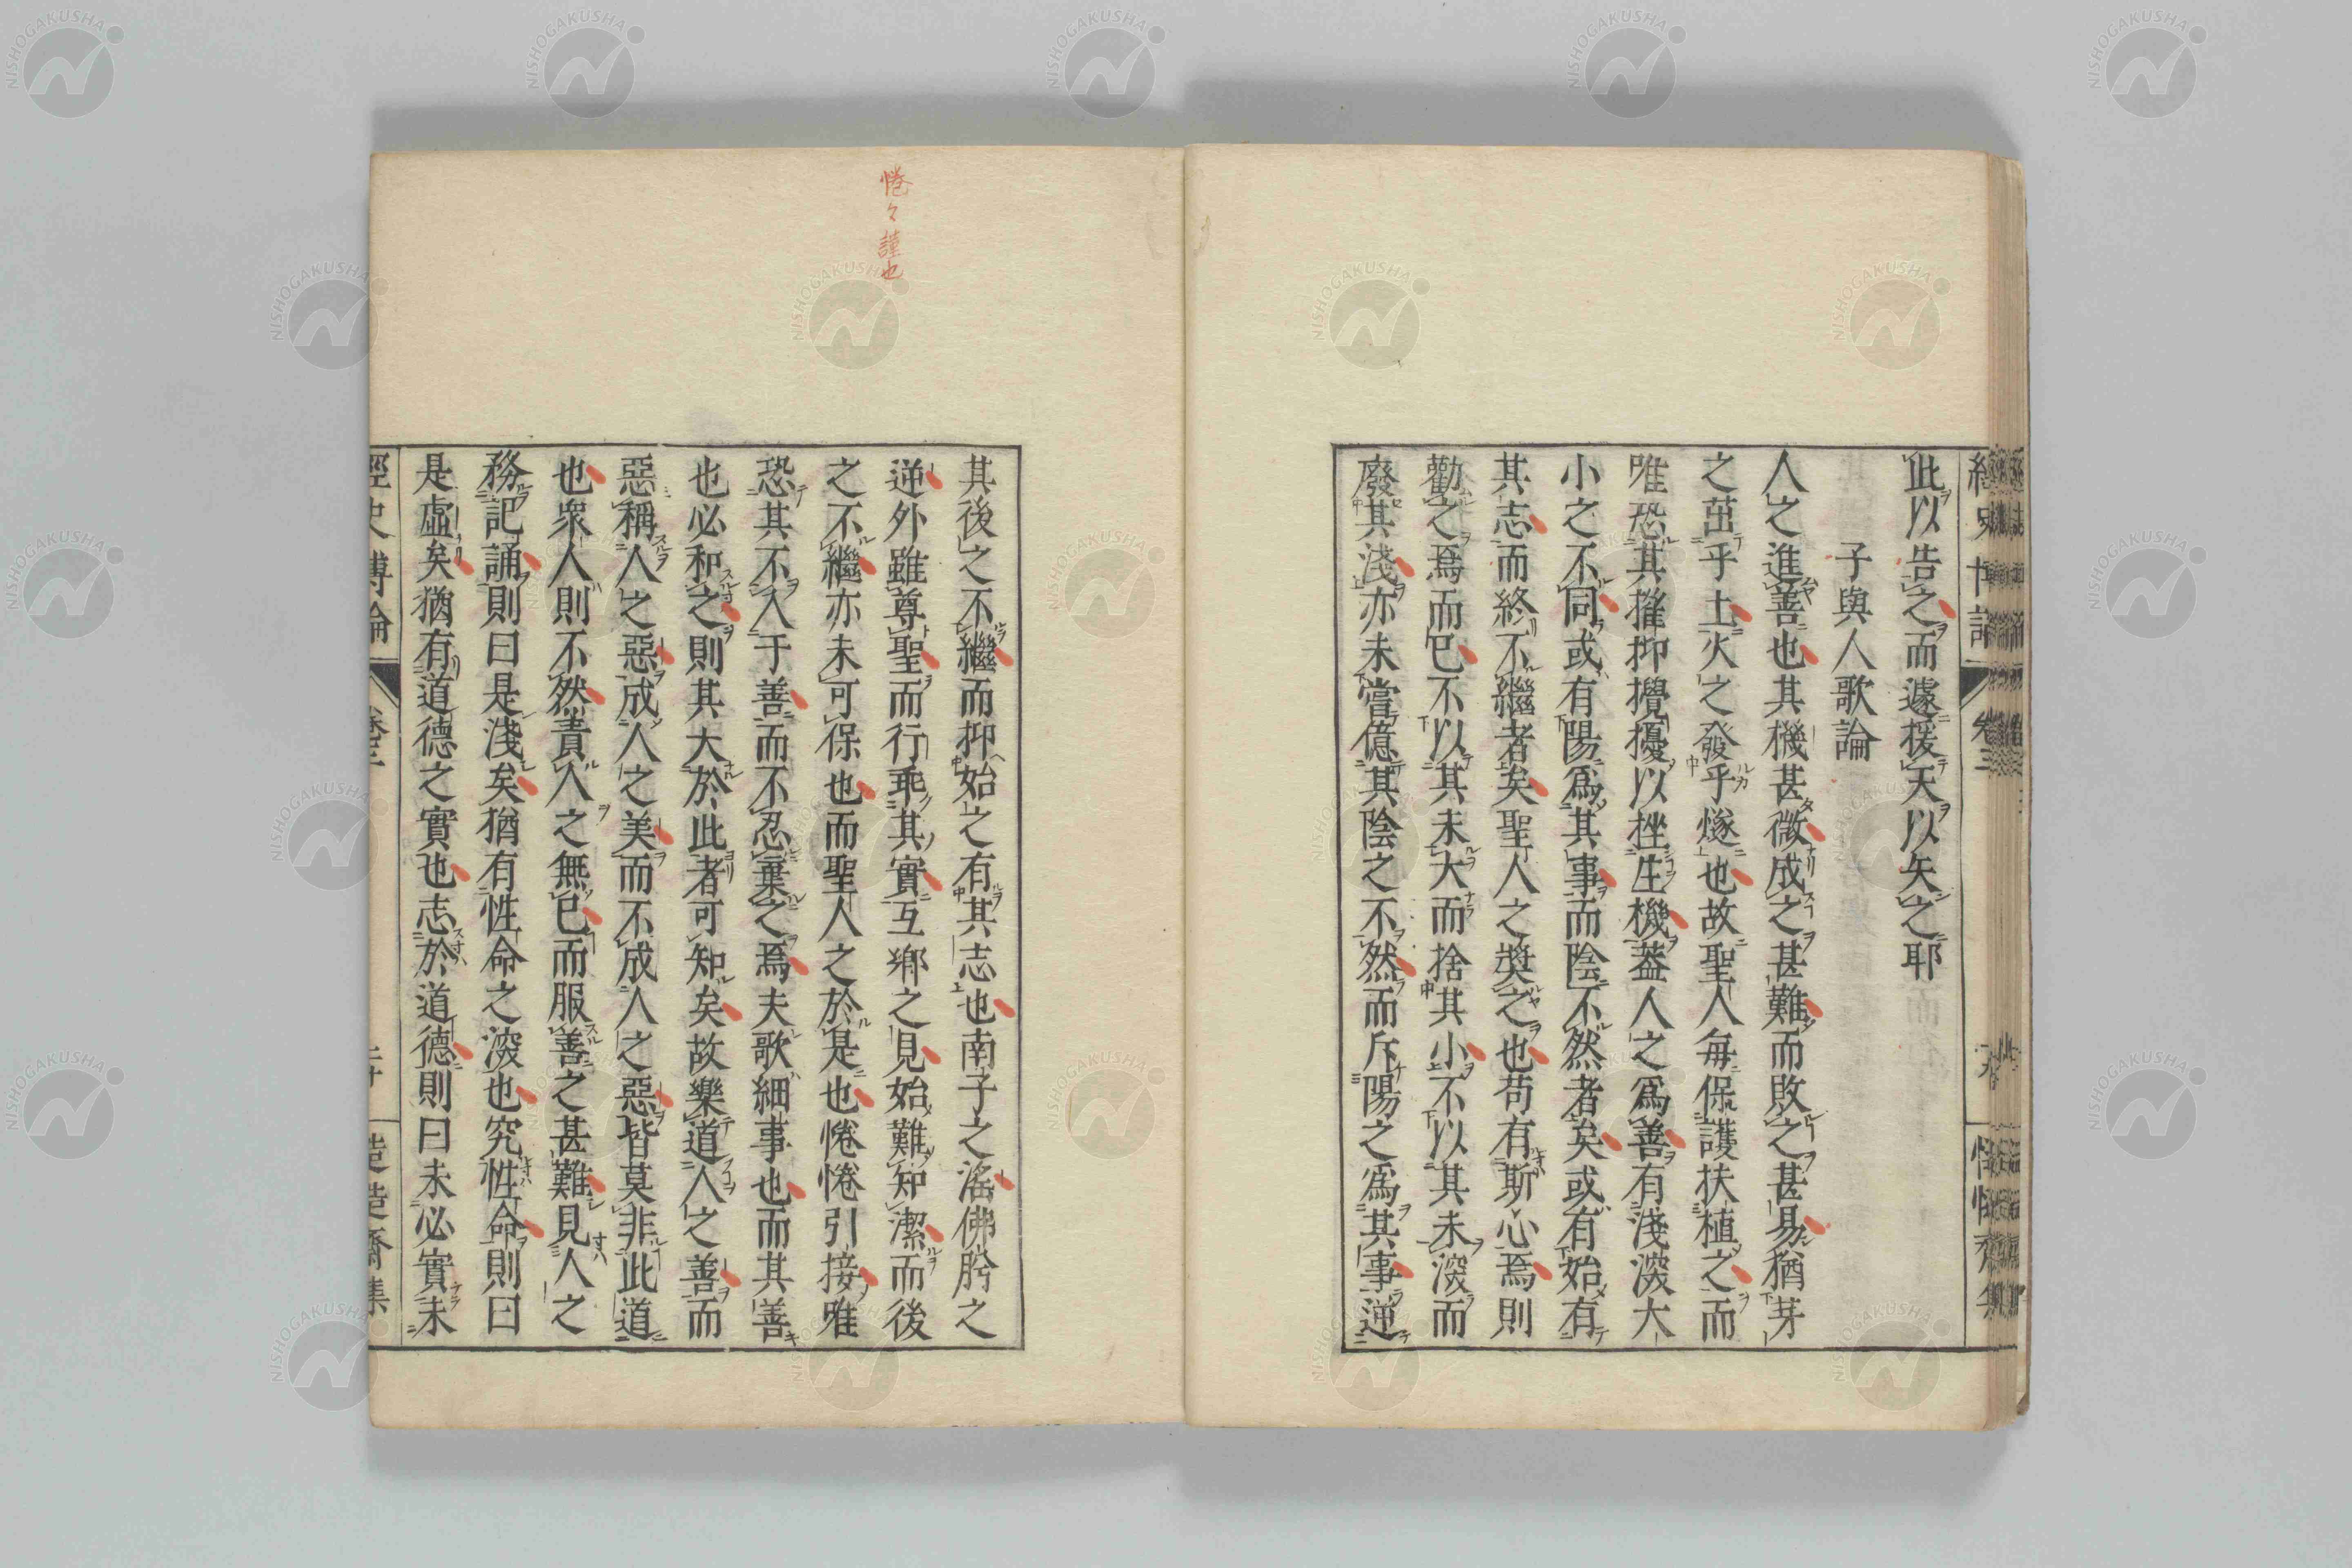 此以告之而遽援天以矢之耶
子與人歌論
人之進善也其機甚微成之甚難而敗之甚易猶芽
之茁乎土火之發乎燧也故聖人每保護扶植之而
唯恐其摧抑攪擾以挫生機蓋人之爲善有淺深大
小之不同或有陽爲其事而陰不然者矣或有始有
其志而終不繼者矣聖人之奬之也苟有斯心焉則
勸之焉而已不以其未大而捨其小不以其未深而
廢其淺亦未嘗億其陰之不然而斥陽之爲其事逆
其後之不繼而抑始之有其志也南子之淫佛肸之
逆外雖尊聖而行乖其實互鄉之見始難知潔而後
之不繼亦未可保也而聖人之於是也惓惓引接唯
恐其不入于善而不忍棄之焉夫歌細事也而其善
也必和之則其大於此者可知矣故樂道人之善而
惡稱人之惡成人之美而不成人之惡皆莫非此道
也衆人則不然責人之無已而服善之甚難見人之
務記誦則曰是淺矣猶有性命之深也究性命則曰
是虛矣猶有道德之實也志於道德則曰未必實未
惓々謹也
經史博論
卷三
NISHOGAKUSHA